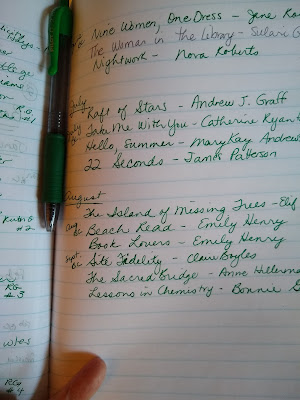 Nine Women, One Dress - Jane
The Woman in the Library - Sulari G
Nightwork - Nora Roberts
July
Raft of Stars - Andrew J. Graff
Take Me With You - Catherine Ryan H
Hello, Summer - Mary Kay Andrews
22 Seconds - James Patterson
August
The Island of Missing Trees - Elif
Beach Read - Emily Henry
Book Lovers - Emily Henry
Sept. Site Fidelity - Claire Boyles
The Sacred Bridge - Anne Hillerman
Lessons in Chemistry - Bonnie G
# 2
# 3
# 4